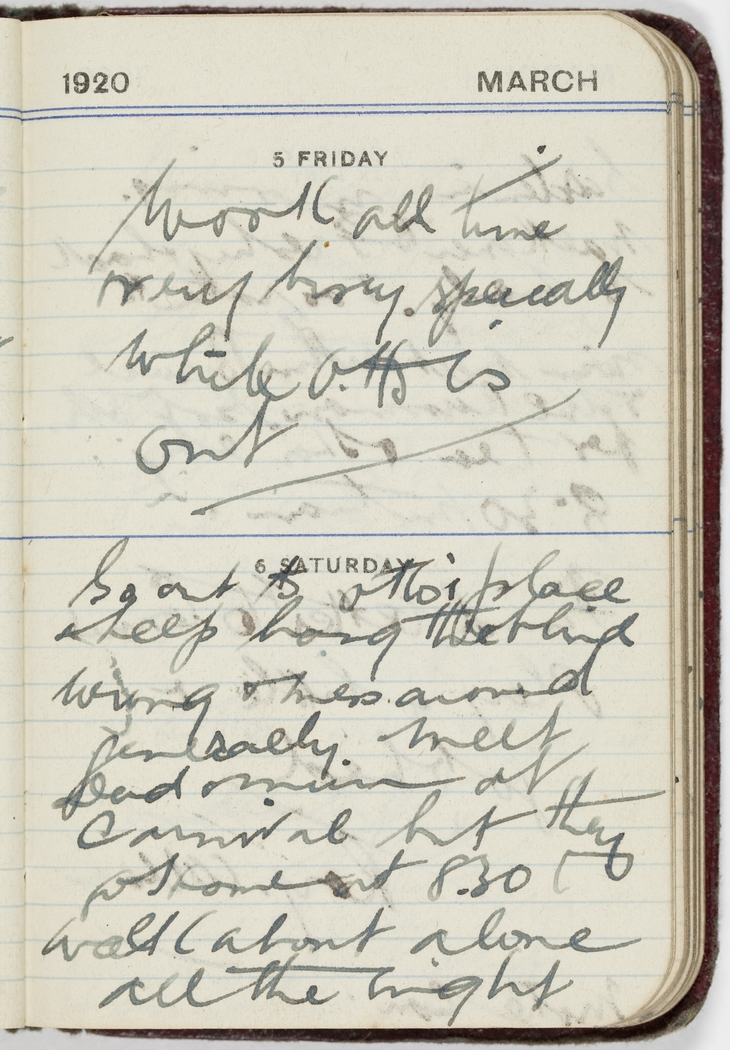 1920 MARCH
5 FRIDAY
Work all time
very busy specially
while Otto is
out
6 SATURDAY
Go out to place
sleep hang the blind
wiring & mess around
generally. meet
Dad & mum at
Carnival but they
go home at 8.30 I
walk about alone
all the night